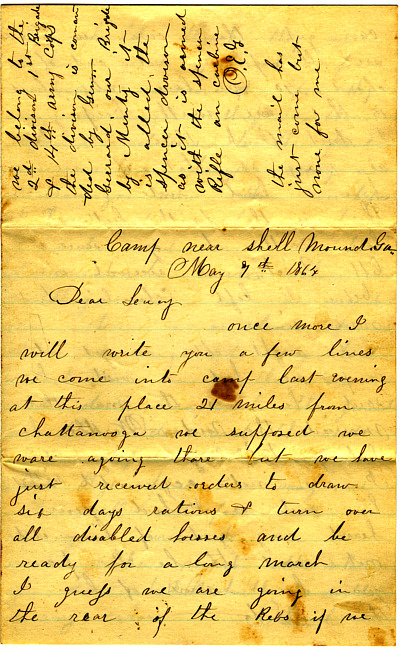 we belong to the
2d division, 1st Brigade
& 4th army Cops
the division is coman
ded by Genr.
Gerrard, our Brigade
by Minty it
is called the
spencer division
as it is armed
with the spencer
Rifle an carbine
the mail has
just come but
none for me
Camp near shell Mound Ga
May 7th 1864
Dear
once more I
will write you a few lines
we come into camp last evening
at this place 21 miles from
chattanooga we supposed we
ware agoing thare but we have
just received orders to draw
six days rations & turn over
all disabled horses and be
ready for a long march
I guess we are going in
the rear of the Rebs if we